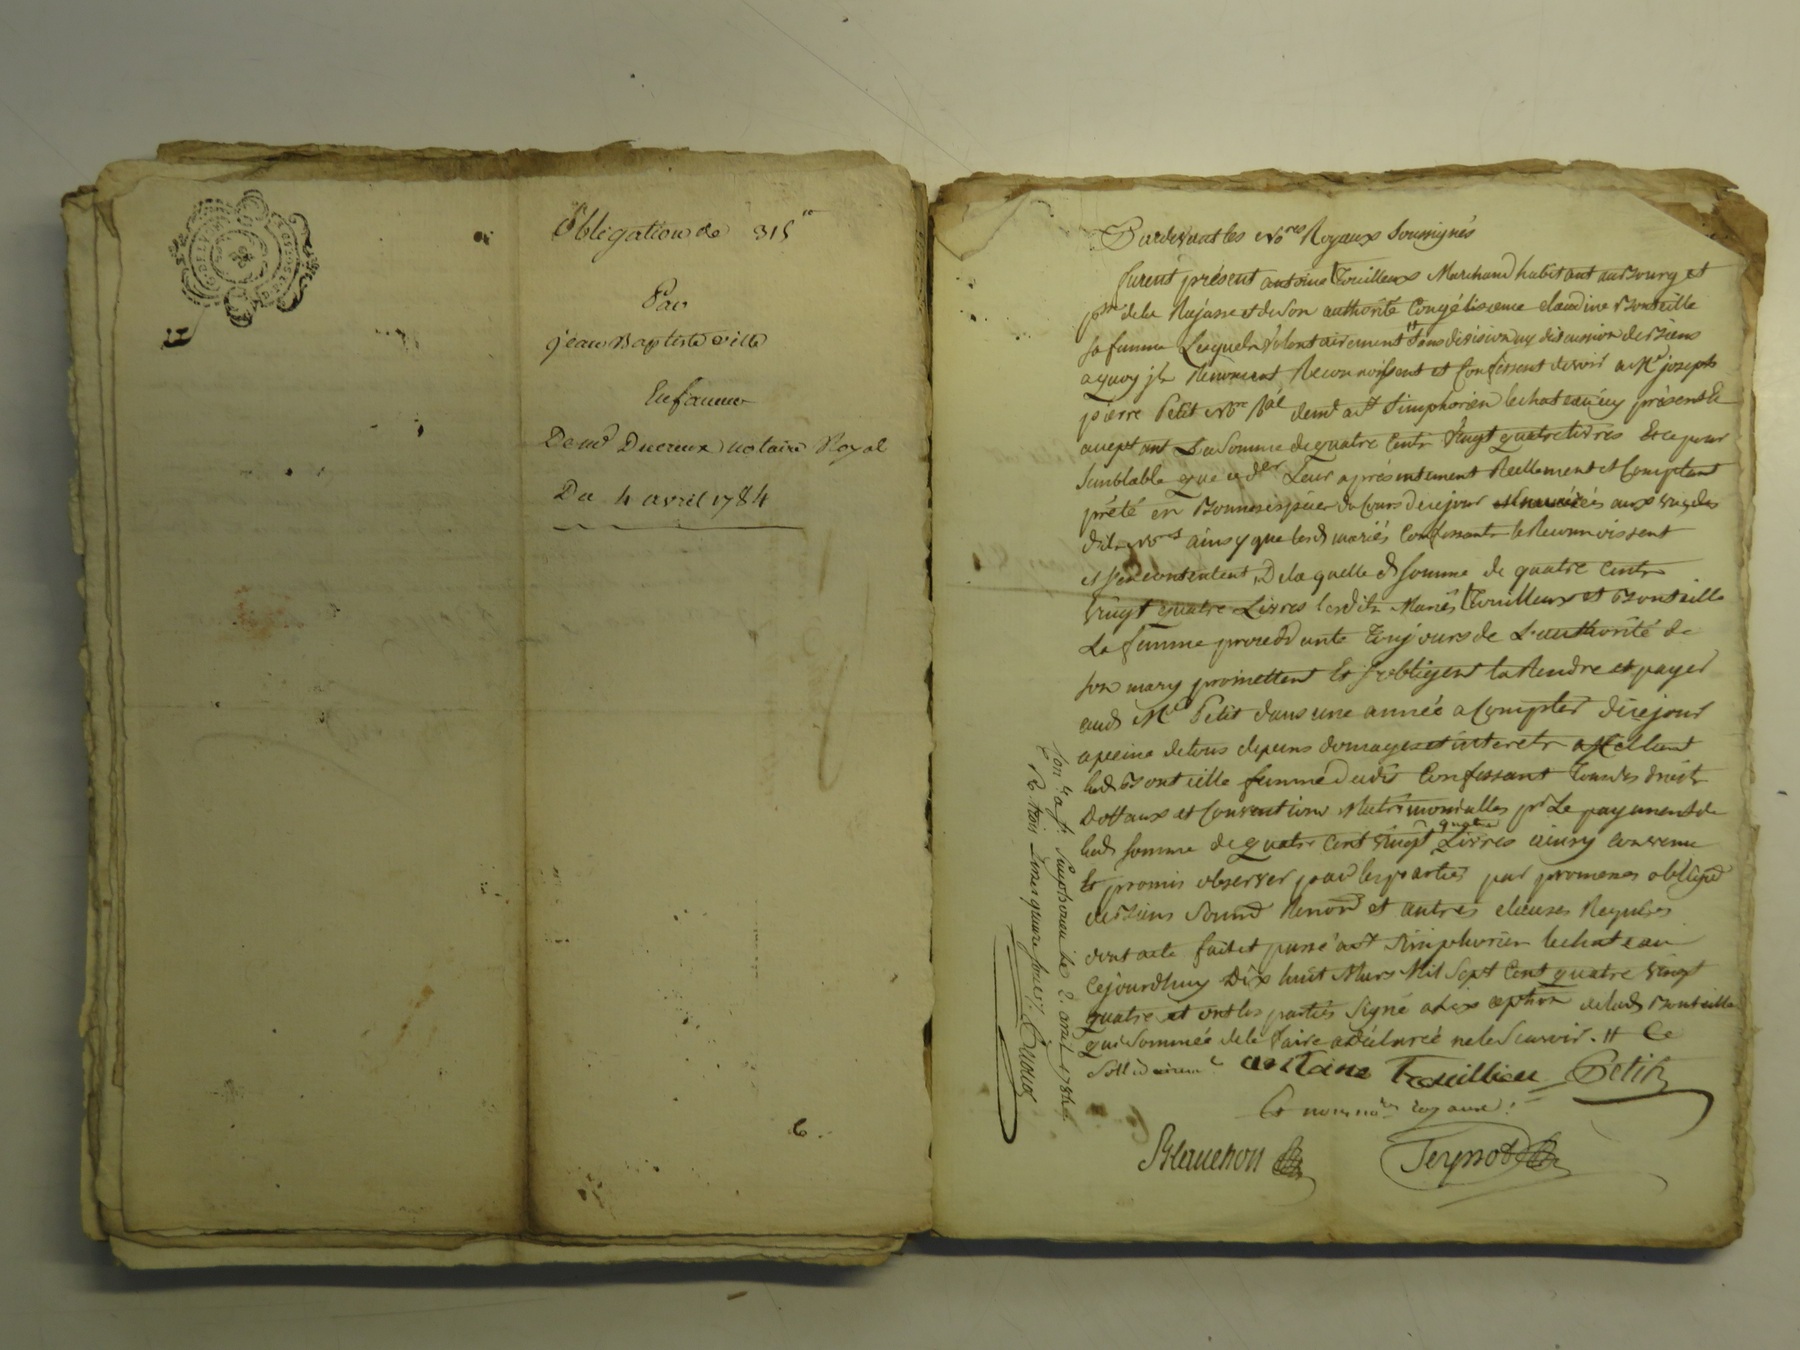 Obligation de 315 ₶
Par
jean Baptiste ville
En faveur
De me Ducreux notaire Royal
Du 4 avril 1784
6.
Pardevant les Nores Royaux Soussignés
furent présent antoine Trouilleux Marchand habitant au Bourg et
psse de la Rajasse et de son authorité Congé licence claudine Bonteille
sa femme Lesquels volontairement sans division ny discussion de Biens
a quoy ils Renoncent Reconnoissent et Confessent devoir a Me joseph
pierre Petit Nore Ral demt a St Simphorien lechateau icy présent &
accept ant La Somme de quatre Cents Vingt quatre livres Et ce pour
Semblable que ledt Sr Leur a présentement Reellement et Comptant
prété en Bonnes espèces du Cours de ce jour aux vuës des
dits Nores ainsy que lesd mariés Confessants le Reconnoissent
et s'en contentent, De laquelle d somme de quatre Cents
Vingt quatre Livres lesdits Mariés Trouilleux et Bonteille
La femme procedd ante Toujours de L'authorité de
son mary promettent Et s'obligent la Rendre et payer
aud Me Petit dans une année a Compter de ce jour
a peine de tous depens domages et interets
lad Bonteille femme Confessant Tous ses droits
Dottaux et Conventions Matrimonialles pr Le payement de
lad somme de quatre Cent Vingt quatre Livres ainsy convenu
Et promis observer par les parties par promesses obligd
de Biens Soumd Renond et autres clauses Requises
dont acte fait et passé a St Simphorien lechateau
Cejourdhuy Dix huit Mars Mil Sept Cent quatre Vingt
quatre et ont les parties Signé a lex ception de lad Bonteille
qui Sommée de le faire a déclaré ne le Scavoir. # Et
Sollidairemt antoine Trouillieu Petit
Et nous nores royaux:
Blanchon Teyssot
Conlé a St Simphorien le 2. avril 1784
R trois Livres quinze sous